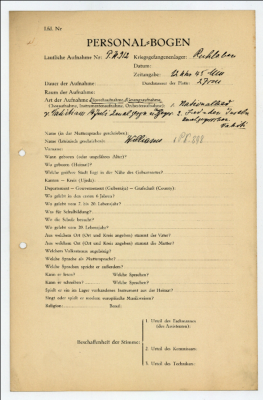 Lfd. Nr
PERSONAL-BOGEN
Lautliche Aufnahme Nr.: P.K. Kriegsgefangenenlager:
Datum:
Zeitangabe: 12 Uhr 45 Min
Dauer der Aufnahme: Durchmesser der Platte: 27 cm
Raum der Aufnahme:
Art der Aufnahme (Sprechaufnahme, Gesangsaufnahme, 1. Nationallied
Choraufnahme, Instrumentenaufnahme, Orchesteraufnahme): 2. Lied
Name (in der Muttersprache geschrieben):
Name (lateinisch geschrieben): Williams
Vorname:
Wann geboren (oder ungefähres Alter)?
Wo geboren (Heimat)?
Welche größere Stadt liegt in der Nähe des Geburtsortes?
Kanton — Kreis (Ujedz):
Departement — Gouvernement (Gubernija) — Grafschaft (County):
Wo gelebt in den ersten 6 Jahren?
Wo gelebt vom 7. bis 20. Lebensjahr?
Was für Schulbildung?
Wo die Schule besucht?
Wo gelebt vom 20. Lebensjahr?
Aus welchem Ort (Ort und Kreis angeben) stammt der Vater?
Aus welchem Ort (Ort und Kreis angeben) stammt die Mutter?
Welchem Volksstamm angehörig?
Welche Sprache als Muttersprache?
Welche Sprachen spricht er außerdem?
Kann er lesen? Welche Sprachen?
Kann er schreiben? Welche Sprachen?
Spielt er ein im Lager vorhandenes Instrument aus der Heimat?
Singt oder spielt er modern europäische Musikweisen?
Religion: Beruf:
1. Urteil des Fachmannes
(des Assistenten):
Beschaffenheit der Stimme:
2. Urteil des Kommissars:
3. Urteil des Technikers: